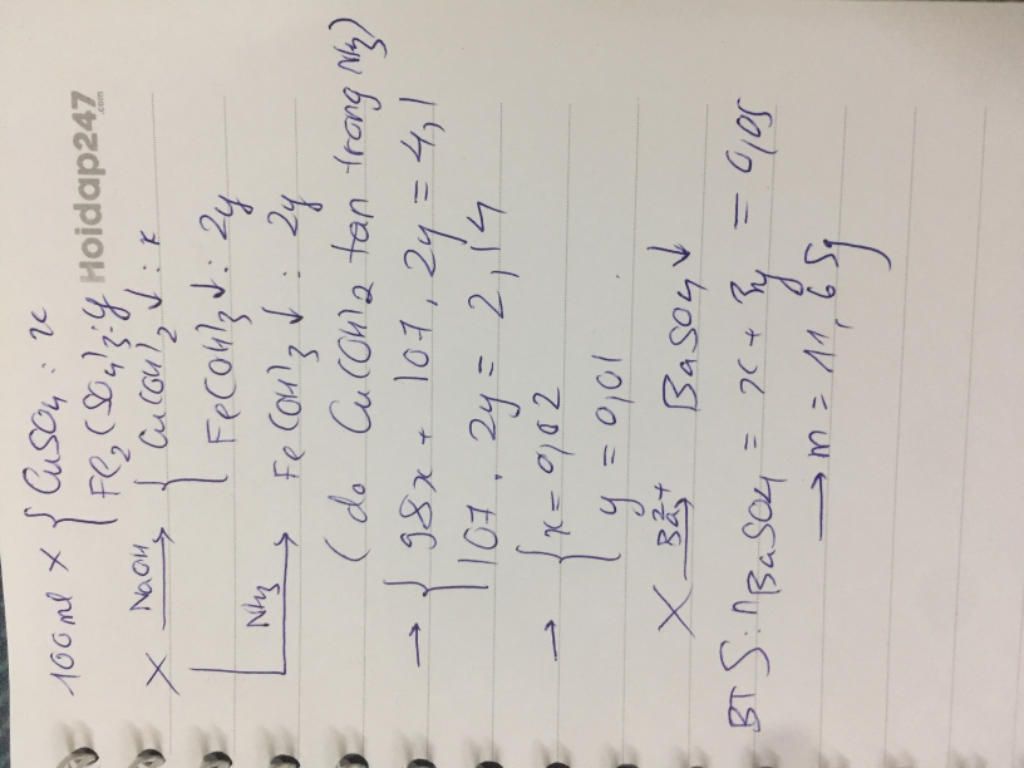 Hoidap247
.com
100ml X { CuSO4 : x
Fe2(SO4)3 : y
X NaOH → { Cu(OH)2↓ : x
Fe(OH)3↓ : 2y
NH3 → Fe(OH)3↓ : 2y
(do Cu(OH)2 tan trong NH3)
→ { 98x + 107.2y = 4,1
107.2y = 2,14
→ { x = 0,02
y = 0,01
X Ba2+ → BaSO4↓
BT S: nBaSO4 = x + 3y = 0,05
→ m = 11,65g